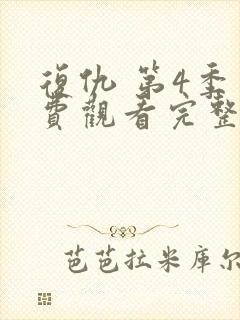 復仇 第4季
費觀看完整
芭芭拉米库尔